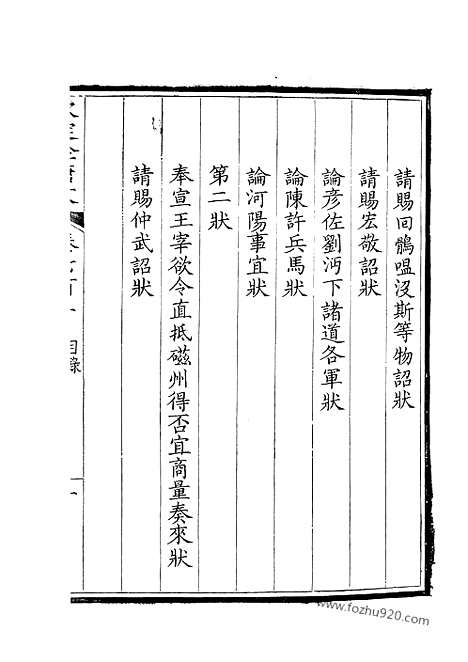 請賜回鶻嗢沒斯等物詔狀
請賜宏敬詔狀
論彥佐劉沔下諸道各軍狀
論陳許兵馬狀
論河陽事宜狀
第二狀
奉宣王宰欲令直抵磁州得否宜商量奏來狀
請賜仲武詔狀
目錄
www.fozhu920.com